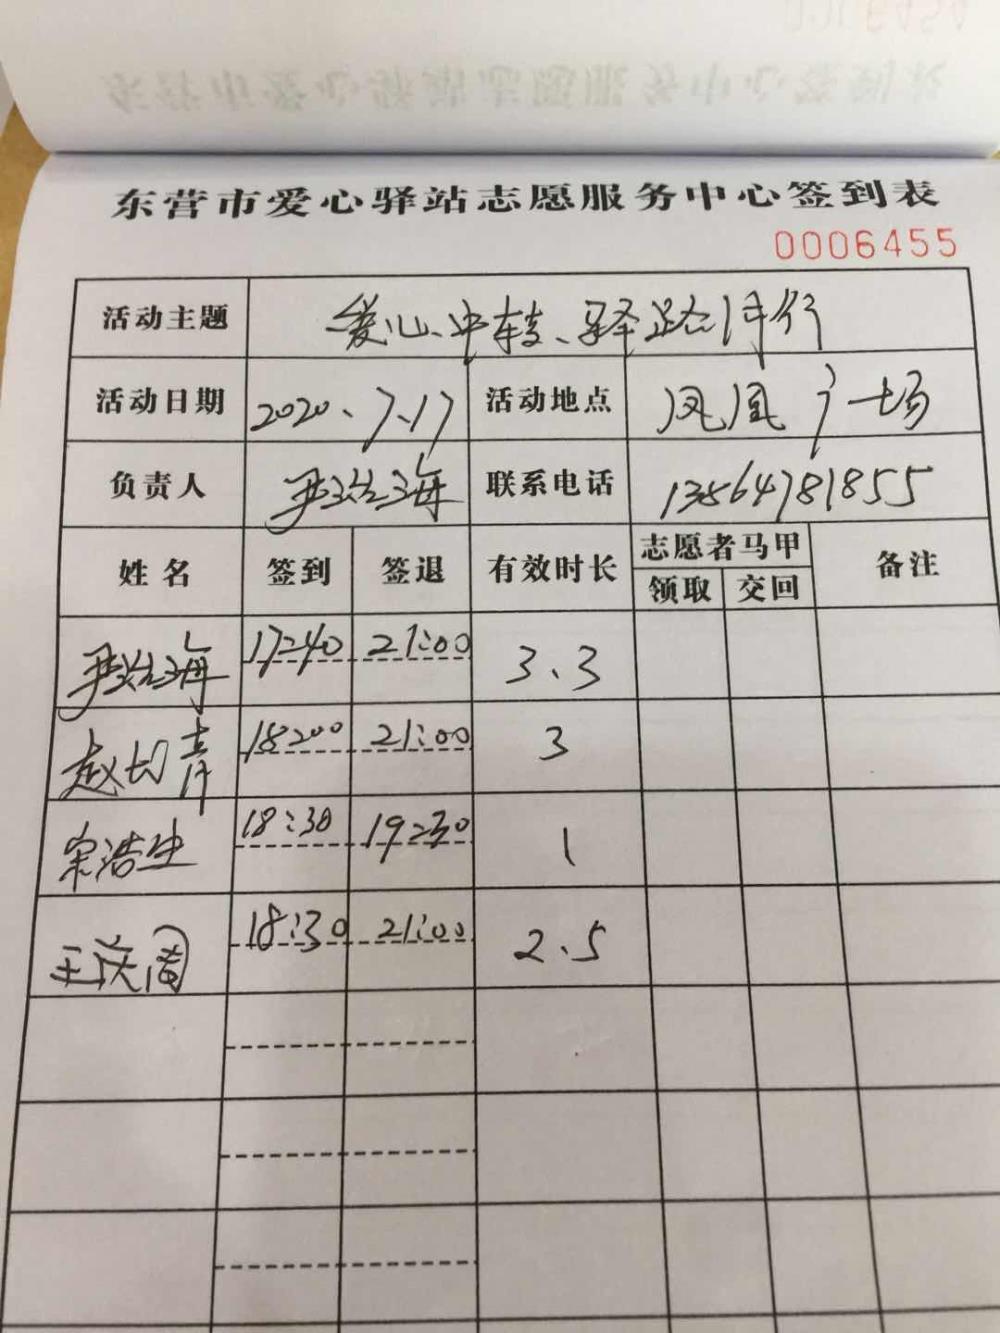 东营市爱心驿站志愿服务中心签到表
0006455
活动主题 爱心中转、驿路伴行
活动日期 2020、7、17 活动地点 凤凰广场
负责人 海 联系电话 13864781855
姓名 签到 签退 有效时长 志愿者马甲 备注
领取 交回
海 17:40 21:00 3、3
赵 青 18:00 21:00 3
宋浩生 18:30 19:30 1
王庆周 18:30 21:00 2、5